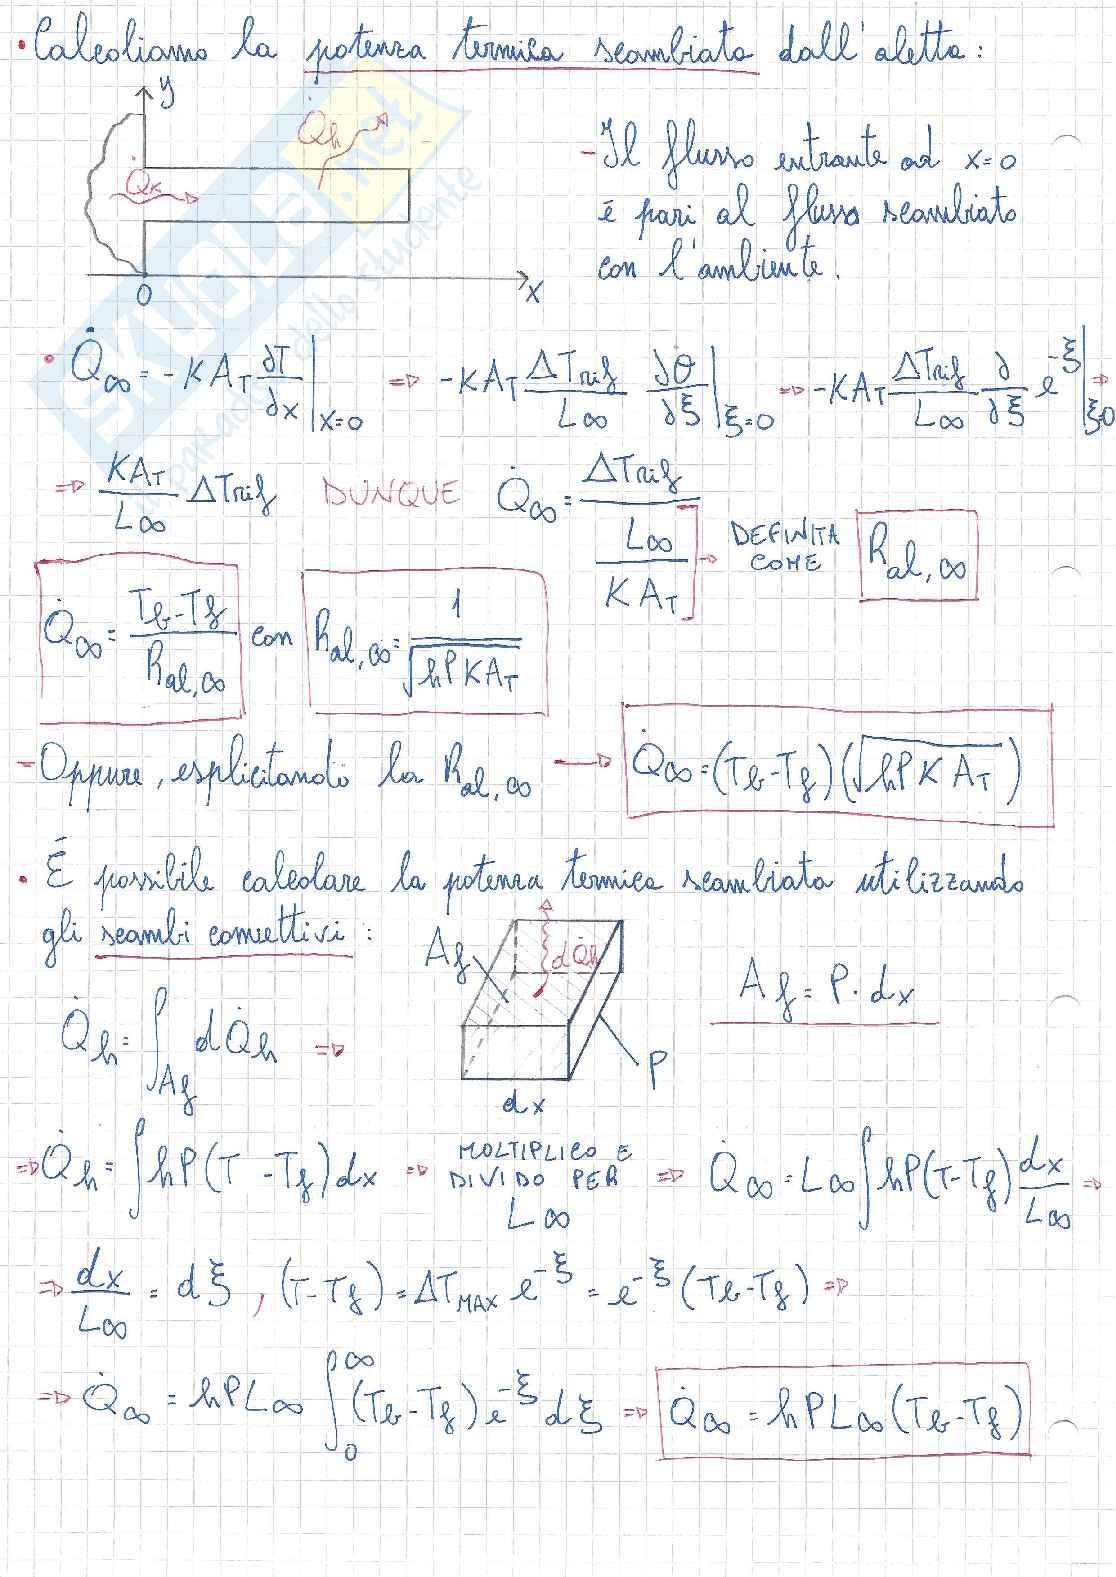 • Calcoliamo la potenza termica scambiata dall'aletta:
y
Q̇h
Q̇k
0
x
- Il flusso entrante ad x=0
è pari al flusso scambiato
con l'ambiente.
• Q̇∞ = -KA_T ∂T/∂x |x=0 => -KA_T ΔTrif/L∞ ∂θ/∂ξ |ξ=0 => -KA_T ΔTrif/L∞ ∂/∂ξ e^-ξ |ξ=0 =>
=> KA_T/L∞ ΔTrif DUNQUE Q̇∞ = ΔTrif / (L∞/KA_T) → DEFINITA COME Ral,∞
Q̇∞ = (Tb-Tf)/Ral,∞ con Ral,∞ = 1/√(hPKA_T)
- Oppure, esplicitando la Ral,∞ → Q̇∞ = (Tb-Tf)(√hPKA_T)
• È possibile calcolare la potenza termica scambiata utilizzando
gli scambi convettivi:
Af
dQ̇h
P
dx
Af = P · dx
Q̇h = ∫Af dQ̇h =>
=> Q̇h = ∫hP(T-Tf)dx => MOLTIPLICO E DIVIDO PER L∞ => Q̇∞ = L∞∫hP(T-Tf) dx/L∞ =>
=> dx/L∞ = dξ, (T-Tf) = ΔT_MAX e^-ξ = e^-ξ (Tb-Tf) =>
=> Q̇∞ = hPL∞ ∫₀^∞ (Tb-Tf)e^-ξ dξ => Q̇∞ = hPL∞(Tb-Tf)
SKUOLA.net
il paradiso dello studente